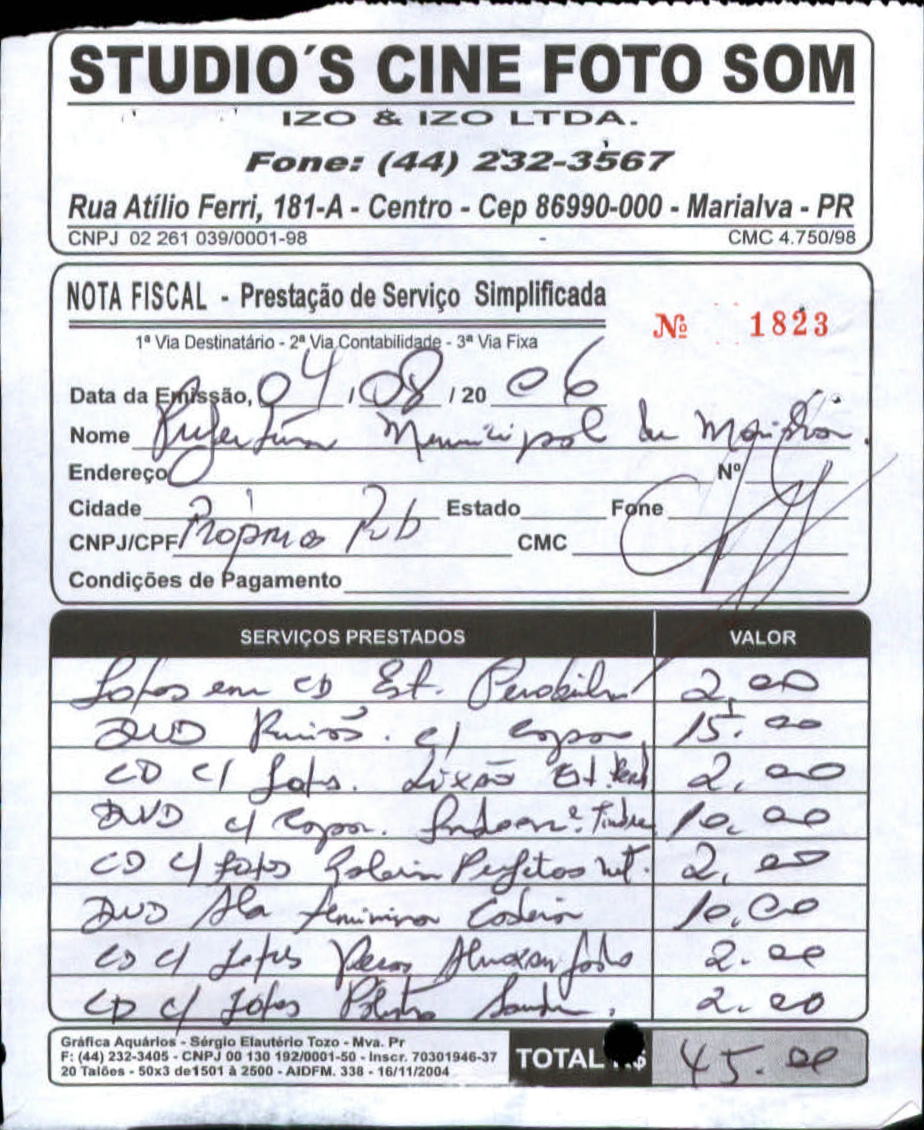 STUDIO´S CINE FOTO SOM
IZO & IZO LTDA.
Fone: (44) 232-3567
Rua Atílio Ferri, 181-A - Centro - Cep 86990-000 - Marialva - PR
CNPJ 02 261 039/0001-98 - CMC 4.750/98
NOTA FISCAL - Prestação de Serviço Simplificada
Nº 1823
1ª Via Destinatário - 2ª Via Contabilidade - 3ª Via Fixa
Data da Emissão, 04 / 08 / 20 06
Nome Municipal de
Endereço Nº
Cidade Estado Fone
CNPJ/CPF CMC
Condições de Pagamento
SERVIÇOS PRESTADOS VALOR
Fotos em CD Est. 2,00
DVD c/ 15.00
CD c/ Fotos. Lixão 2,00
DVD c/ 10,00
CD c/ Fotos 2,00
DVD Ala Feminina Cadeia 10,00
CD c/ Fotos 2.00
CD c/ Fotos 2.00
Gráfica Aquários - Sérgio Elautério Tozo - Mva. Pr
F: (44) 232-3405 - CNPJ 00 130 192/0001-50 - Inscr. 70301946-37
20 Talões - 50x3 de1501 à 2500 - AIDFM. 338 - 16/11/2004
TOTAL 45.00